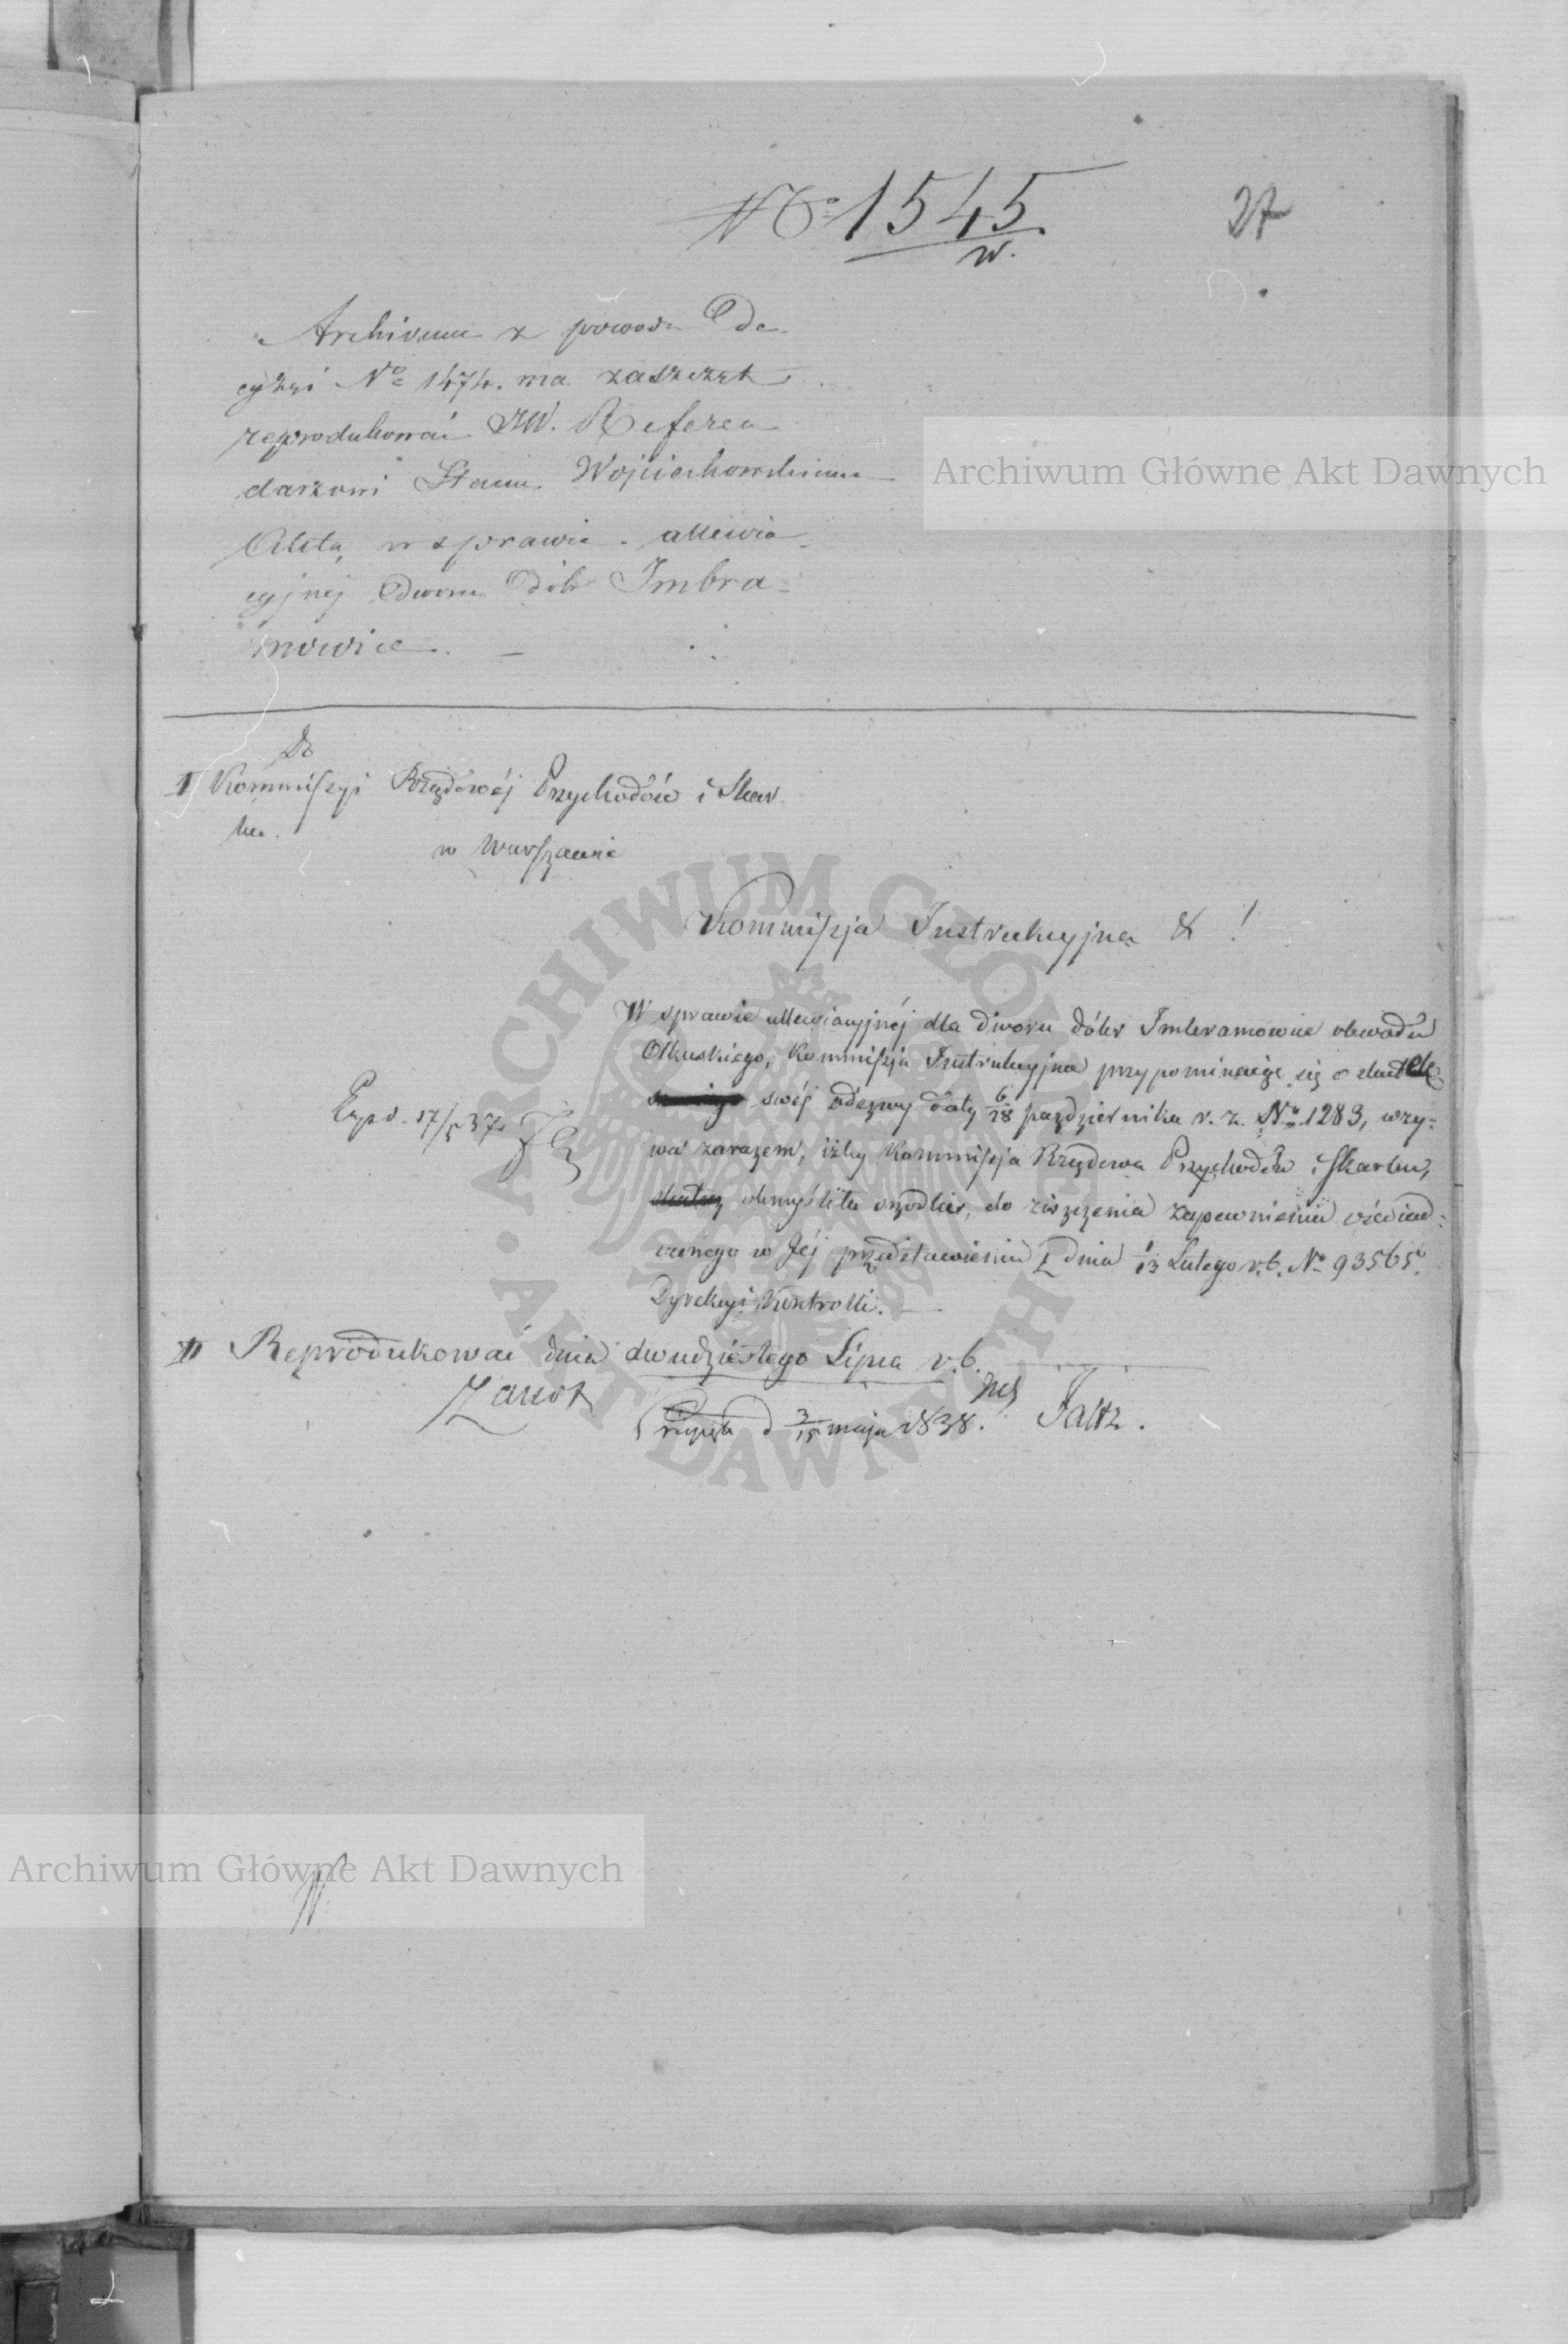 No 1545.
w.
27
Archivum z powodu De-
cyzyi No 1474. ma zaszczyt
reprodukować JW. Referen
darzowi Stanu Wojciechowskiemu
Akta w sprawie allewia-
cyjnej Dworu Dóbr Imbra-
mowice. —
Archiwum Główne Akt Dawnych
Do
I Kommissyi Rządowéj Przychodów i Skar-
bu.
w Warszawie
Kommissja Instrukcyjna & !
W sprawie allewiacyjnéj dla dworu dóbr Imbramowice obwodu
Olkuskiego, Kommissja Instrukcyjna przypominając się o skutek
swéj odezwy daty 6/18 października r. z. No 1283, wzy-
wa zarazem, iżby Kommissja Rządowa Przychodów i Skarbu,
obmyśliła srzodki, do ziszczenia zapewnienia oświad-
czonego w Jéj przedstawieniu z dnia 1/13 Lutego r. b. No 93565.
Dyrekcyi Kontrolli. —
Expd. 17/5 37.
II Reprodukować dnia dwudziestego Lipca r. b.
d 3/15 maja 1838. Faltz.
ARCHIWUM GŁÓWNE
AKT DAWNYCH
Archiwum Główne Akt Dawnych